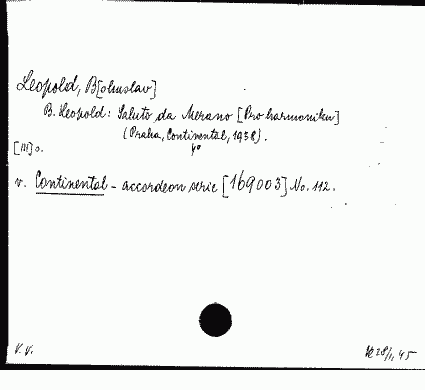 Leopold, B[ohuslav]
B. Leopold: Saluto da Merano [Pro harmoniku]
(Praha, Continental, 1938).
4°
[III] o.
v. Continental - accordeon serie [169003] No. 112.
V. V.
28/1, 45